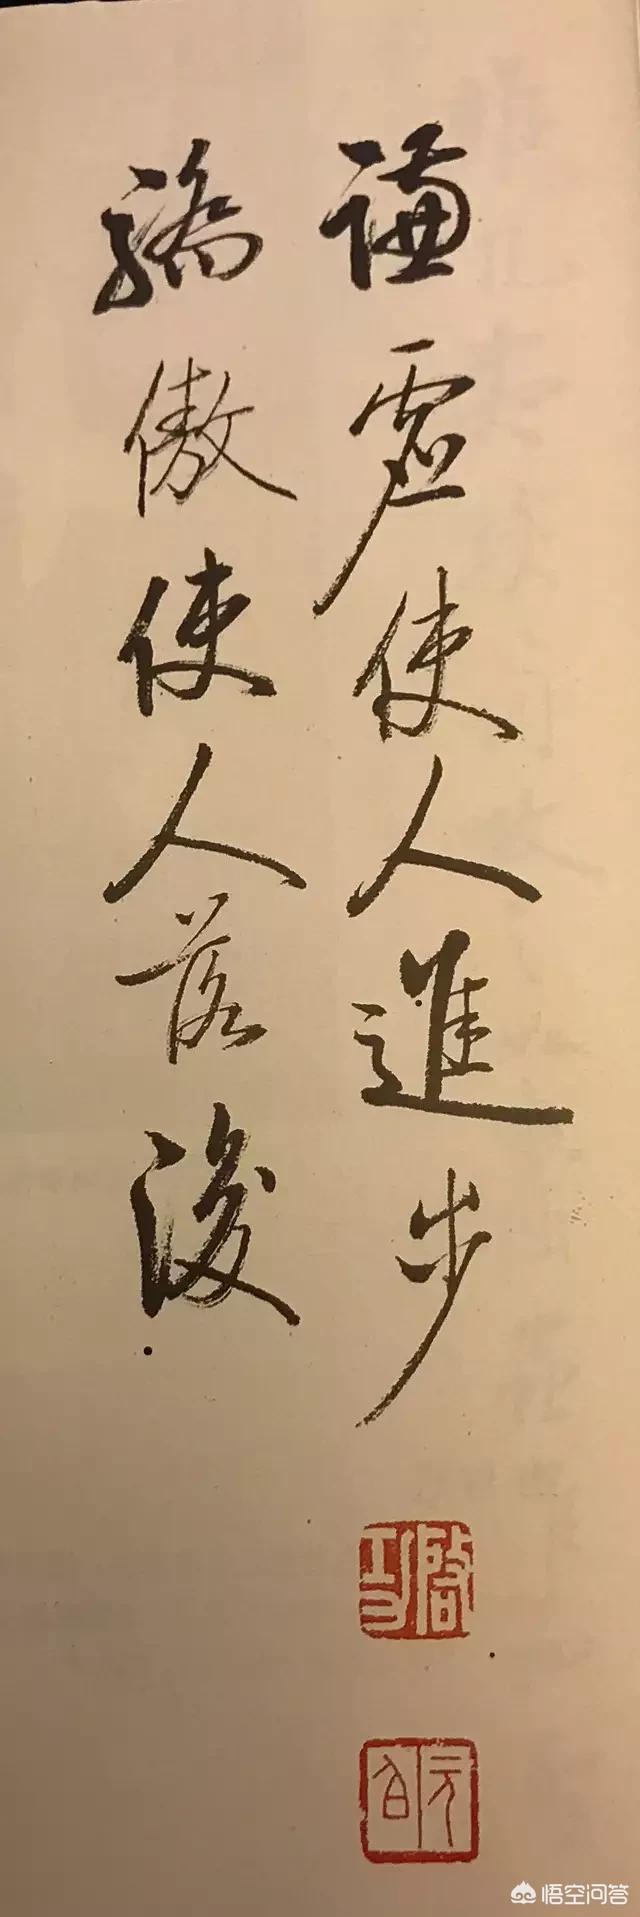 謙虛使人進步
驕傲使人落後
啟功
元白
悟空问答